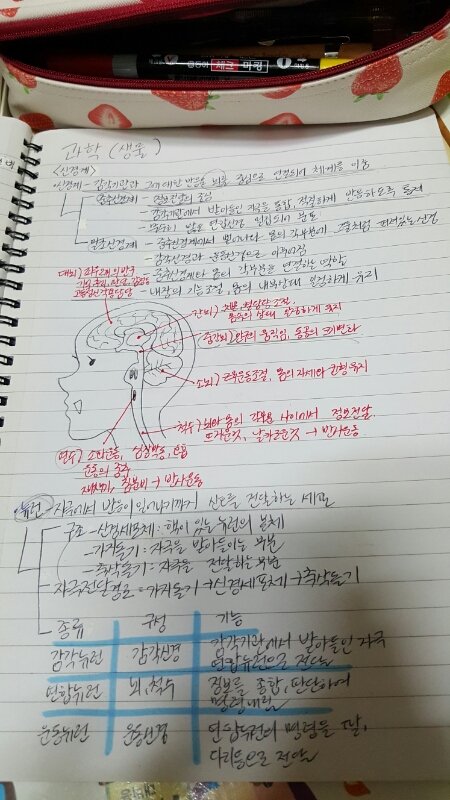 체크 마킹
과학 (생물)
<신경계>
신경계 - 감각기관과 그에 대한 반응을 뇌를 중심으로 연결되어 체계를 이룸
중추신경계 -
- 감각기관에서 받아들인 자극을 통합 적절하게 반응하도록 조절
- 뇌와 척수 연합신경
말초신경계 - 중추신경계에서 뻗어나와 몸의 각부분에 그물처럼 퍼져있는 신경
- 감각신경과 운동신경으로 이루어짐
- 중추신경계와 몸의 각부분을 연결하는 역할
- 내장의 기능조절, 몸의 내부상태 일정하게 유지
대뇌) 좌우 2개의 반구
기억, 추리, 판단, 감정등
고등정신작용담당
간뇌) 체온, 혈당량 조절,
몸속의 상태 일정하게 유지
중간뇌) 안구의 움직임, 동공의 크기변화
소뇌) 근육운동조절, 몸의 자세와 균형유지
척수) 뇌와 몸의 각부분 사이에서 정보전달
뜨거운것, 날카로운것 → 반사운동
연수) 소화운동, 심장박동, 호흡
운동의 중추
재채기, 침분비 → 반사운동
뉴런 - 자극에서 반응이 일어나기까지 신호를 전달하는 세포
구조 - 신경세포체 : 핵이 있는 뉴런의 본체
- 가지돌기 : 자극을 받아들이는 부분
- 축삭돌기 : 자극을 전달하는 부분
자극전달경로 - 가지돌기 → 신경세포체 → 축삭돌기
종류 구성 기능
감각뉴런 감각신경 감각기관에서 받아들인 자극
연합뉴런으로 전달
연합뉴런 뇌, 척수 정보를 종합, 판단하여
명령내림
운동뉴런 운동신경 연합뉴런의 명령을 팔,
다리등으로 전달